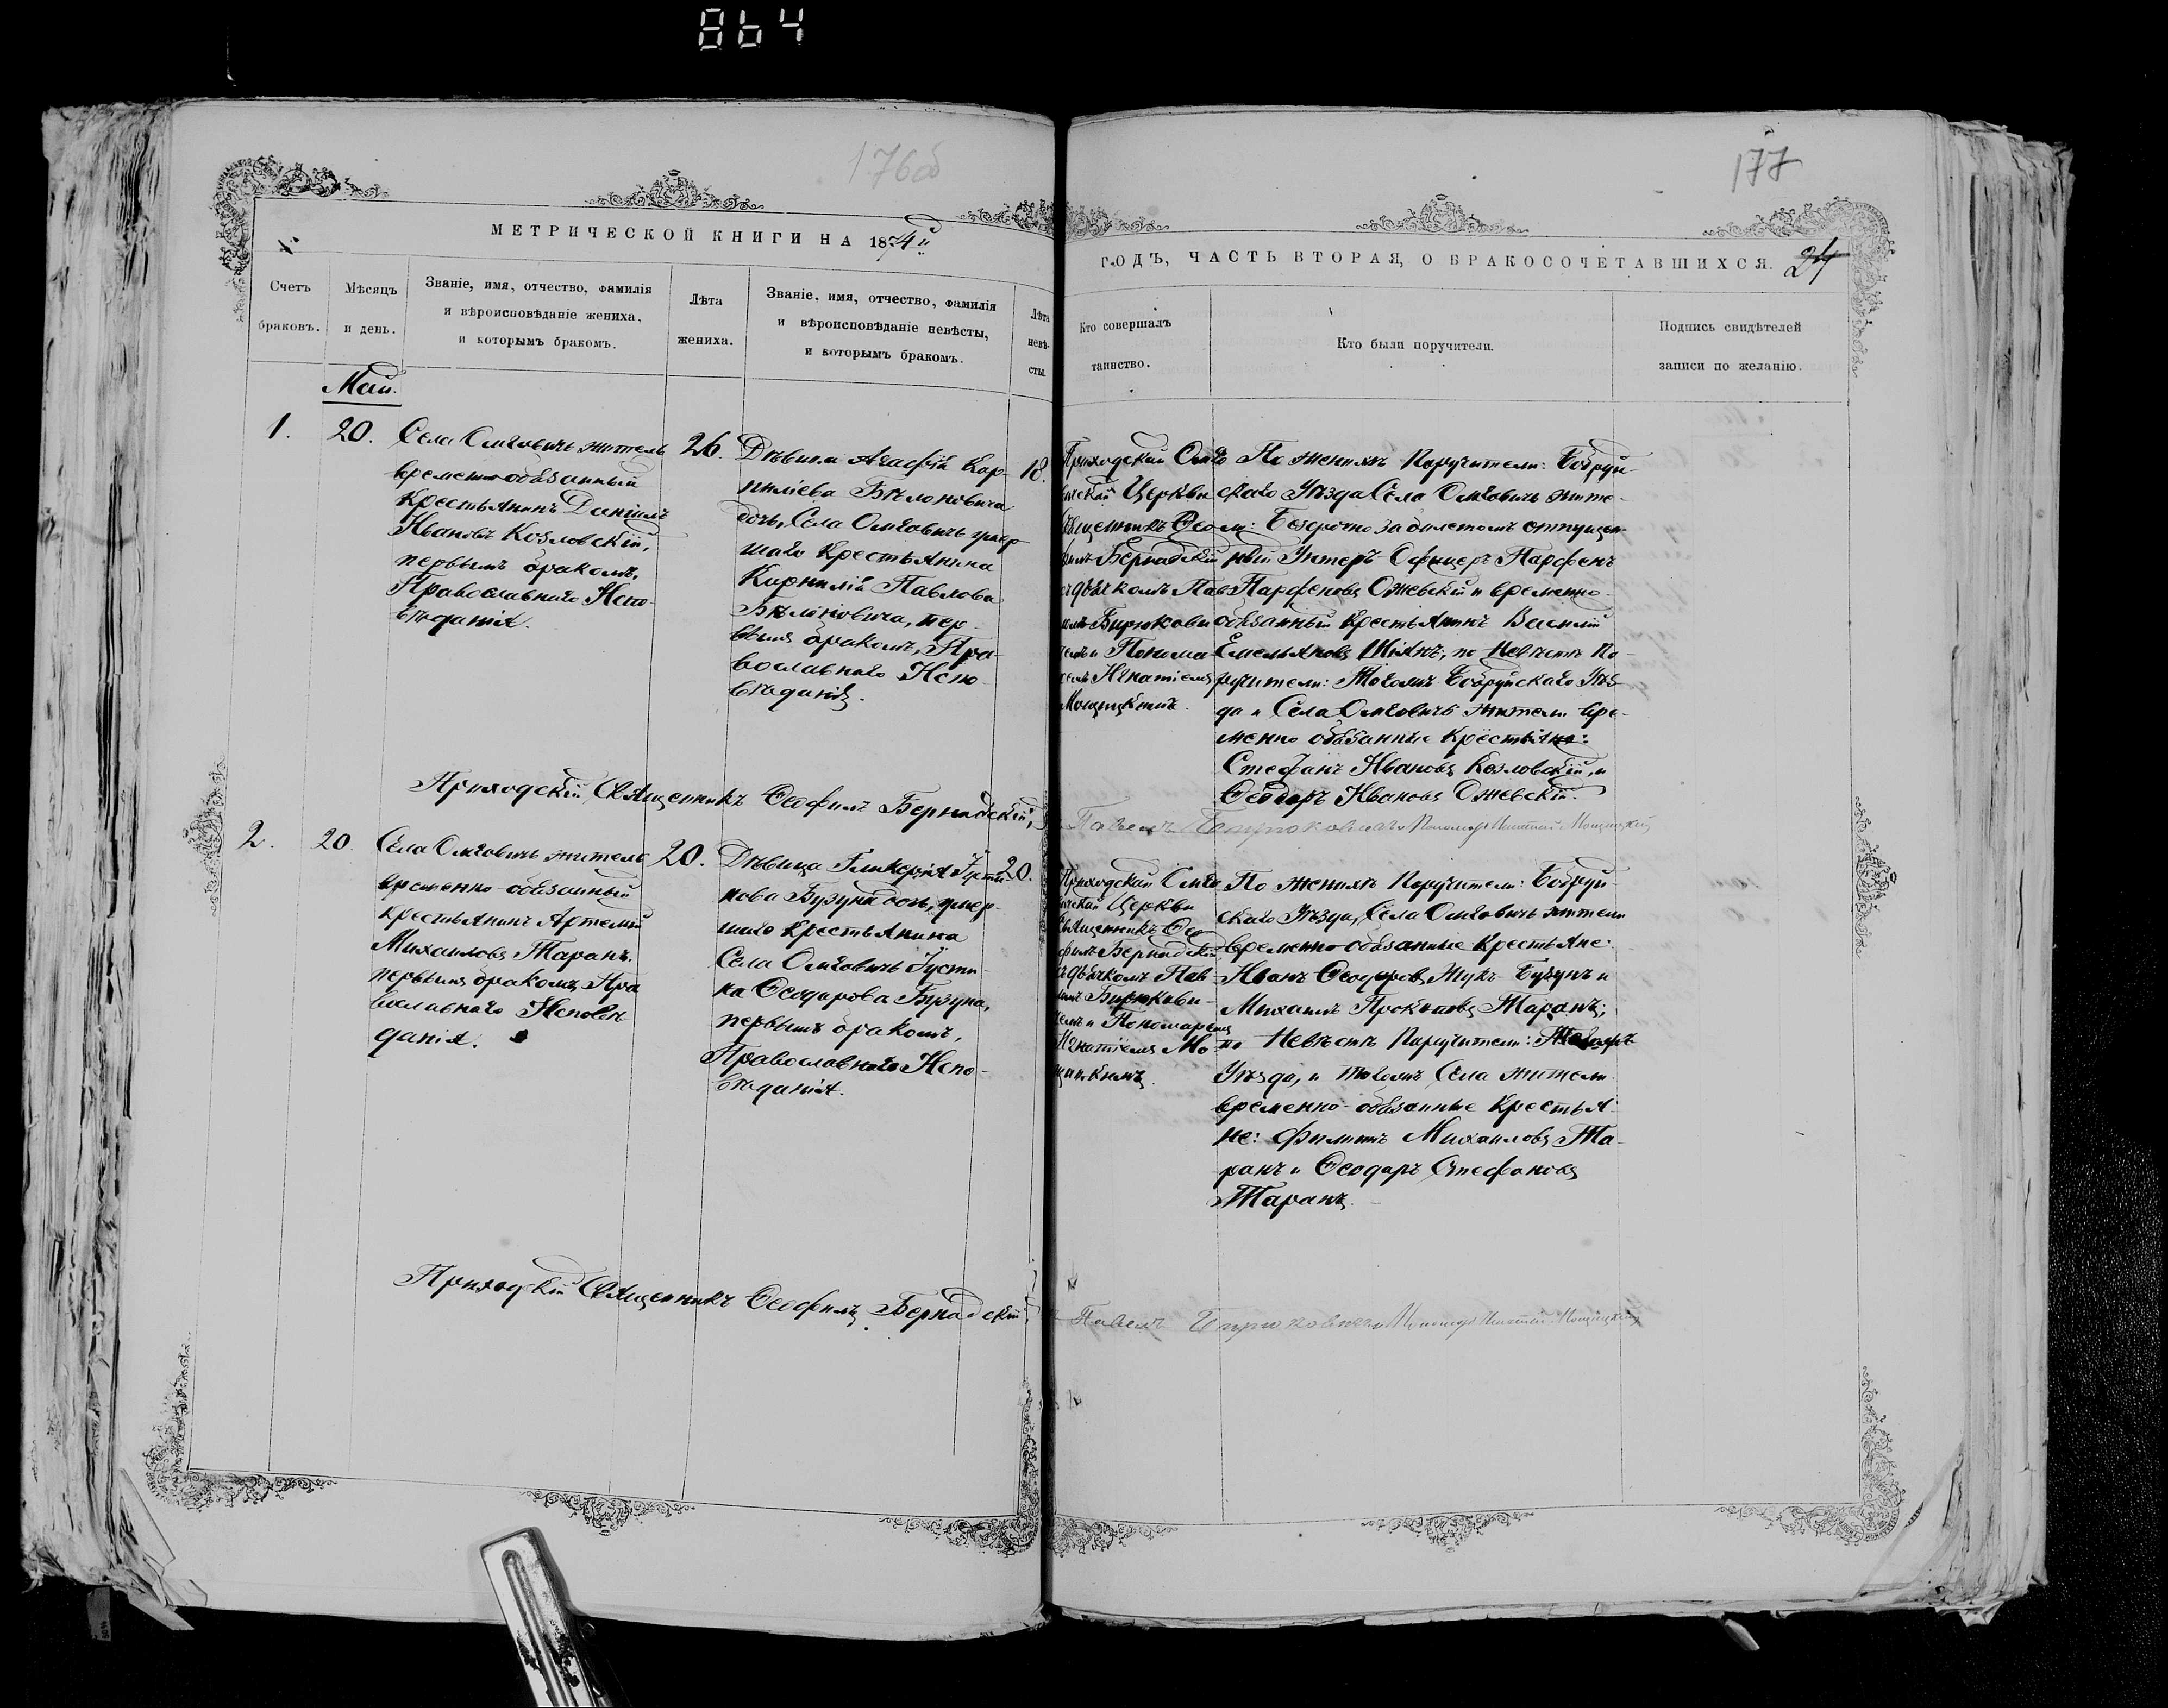 864
176об
177
МЕТРИЧЕСКОЙ КНИГИ НА 1874й
ГОДЪ, ЧАСТЬ ВТОРАЯ, О БРАКОСОЧЕТАВШИХСЯ.
24
Счетъ
браковъ.
Мѣсяцъ
и день.
Званіе, имя, отчество, фамилія
и вѣроисповѣданіе жениха,
и которымъ бракомъ.
Лѣта
жениха.
Званіе, имя, отчество, фамилія
и вѣроисповѣданіе невѣсты,
и которымъ бракомъ.
Лѣта
невѣ-
сты.
Кто совершалъ
таинство.
Кто были поручители.
Подпись свидѣтелей
записи по желанію.
Май.
1.
20.
Села Омговичъ житель
временно-обязанный
Крестьянинъ Даніилъ
Ивановъ Козловскій,
первымъ бракомъ,
Православнаго Испо-
вѣданія.
26.
Дѣвица Агафія Кор-
ниліева Бѣлоновича
дочь, Села Омговичъ умер-
шаго Крестьянина
Корнилія Павлова
Бѣлоновича, пер-
вымъ бракомъ, Пра-
вославнаго Испо-
вѣданія.
18.
Приходской Омго
Церкви
Ѳео-
Бернадскій
Пав-
Бирюкови
Понома
Игнатіемъ
Мощицкимъ.
По женихѣ Поручители: Бобруй-
скаго Уѣзда Села Омговичъ жите-
ли: Безсрочно за билетомъ отпущен-
ный Унтеръ Офицеръ Парфенъ
Парфеновъ Ожевскій и временно-
обязанный Крестьянинъ Василій
Емельяновъ Шіянъ; по Невѣстѣ По-
ручители: Тогожъ Бобруйскаго Уѣз
да и Села Омговичъ жители вре-
менно обязанные Крестьяне:
Стефанъ Ивановъ Козловскій, и
Ѳеодоръ Ивановъ Ожевскій.
Приходскій Священникъ Ѳеофилъ Бернадскій,
Павелъ Бирюковичъ Пономарь Игнатій Мощицкій
2.
20.
Села Омговичъ житель
временно-обязанный
Крестьянинъ Артемій
Михаиловъ Таранъ.
первымъ бракомъ, Пра
вославнаго Исповѣ
данія.
20.
Дѣвица Гликерія Густи-
нова Бузуна дочь, умер-
шаго Крестьянина
Села Омговичъ Густи-
на Ѳеодорова Бузуна,
первымъ бракомъ,
Православнаго Испо-
вѣданія.
20.
Приходской Омго
Церкви
Священникъ Ѳео
Бернадскій
Пав-
Бирюкови-
и Пономаремъ
Игнатіемъ Мо-
По женихѣ Поручители: Бобруй-
скаго Уѣзда, Села Омговичъ жители
временно-обязанные Крестьяне:
Иванъ Ѳеодоровъ Жукъ-Бузунъ и
Михаилъ Прокоповъ Таранъ;
по Невѣстѣ Поручители: Тогожъ
Уѣзда, и тогожъ Села жители
временно-обязанные Крестья-
не: Филипъ Михаиловъ Та-
ранъ и Ѳеодоръ Стефановъ
Таранъ.
Приходскій Священникъ Ѳеофилъ Бернадскій.
Павелъ Бирюковичъ Пономарь Игнатій Мощицкій